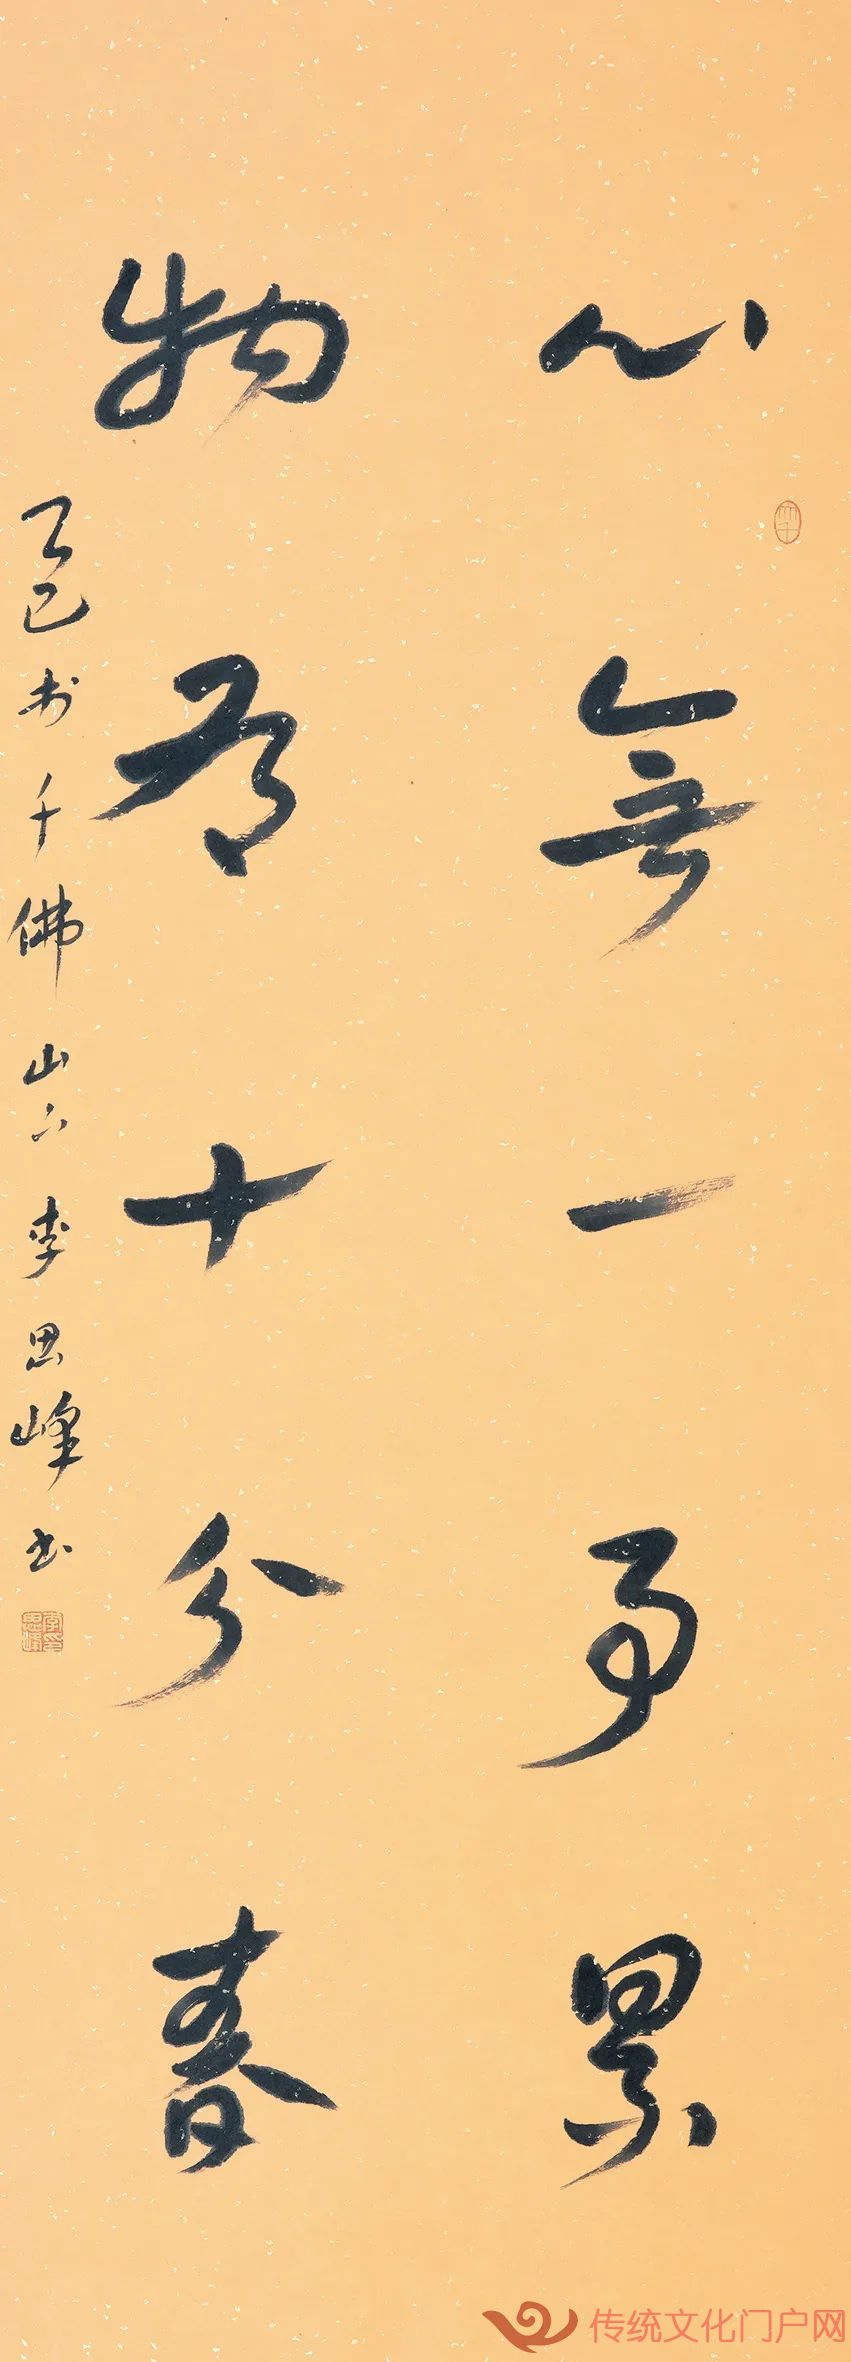 心無一事累
物有十分春
乙巳於千佛山下李思峰书
李思峰印
传统文化门户网